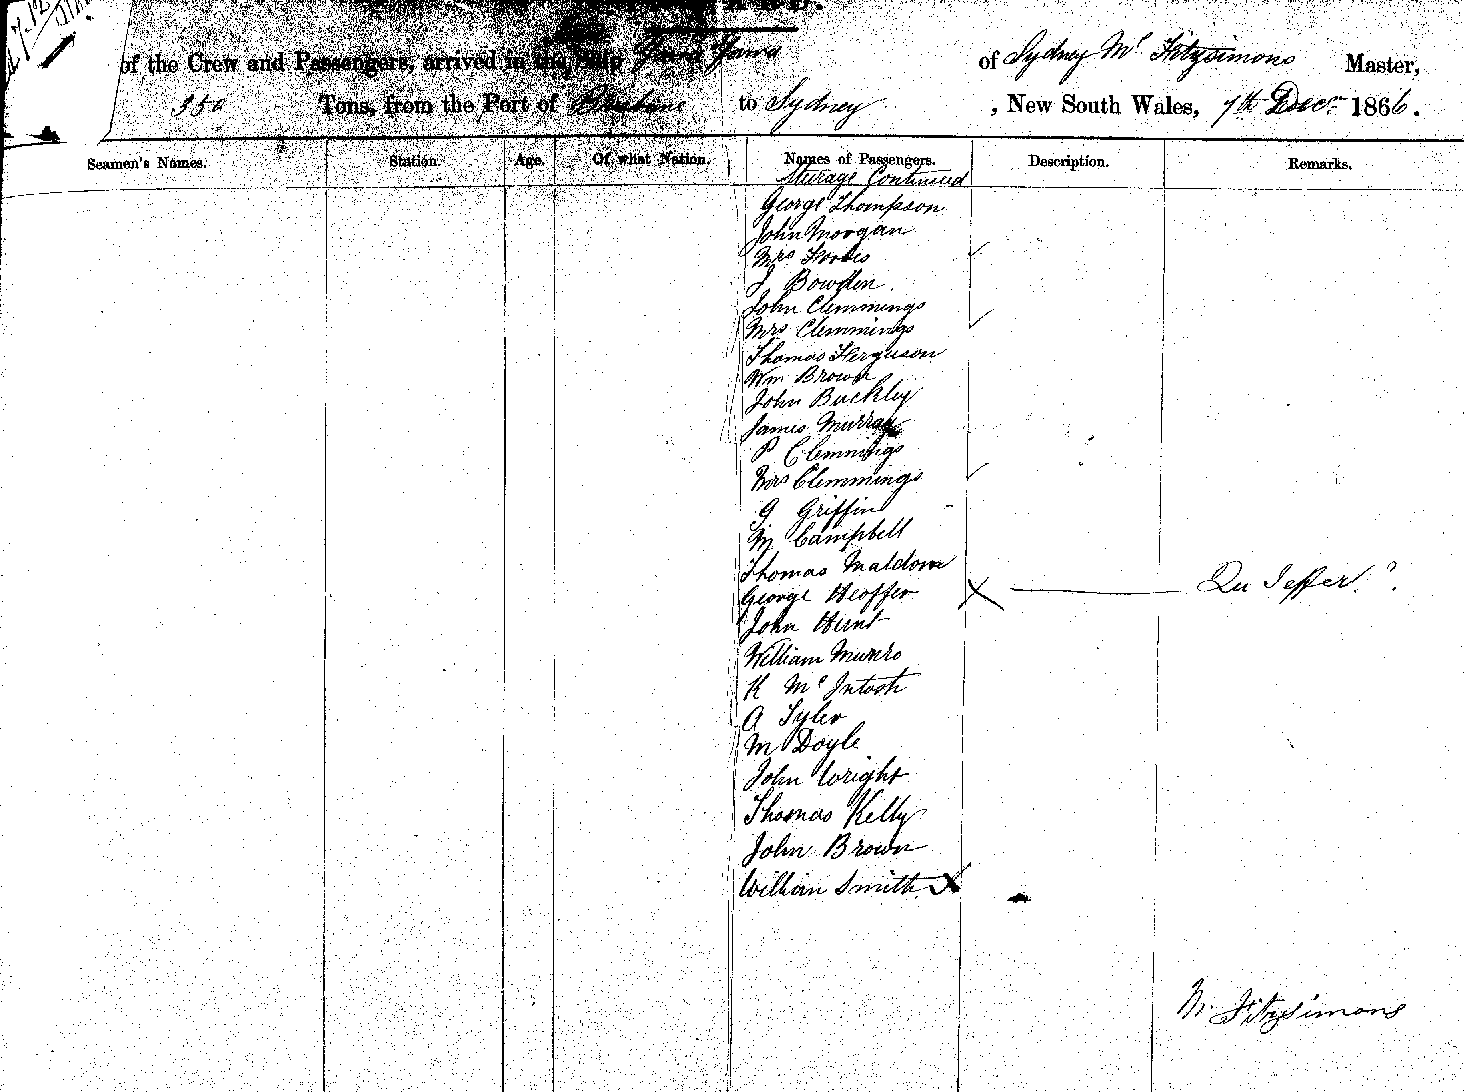 of the Crew and Passengers, arrived in the Ship Yarra Yarra of Sydney Mc Fitzsimons Master,
350 Tons, from the Port of Brisbane to Sydney , New South Wales, 7th Decr 1866.
Seamen's Names. Station. Age. Of what Nation. Names of Passengers. Description. Remarks.
Steerage Continued
George Thompson
John Morgan
Mrs
J Bowden
John Clemmings
Mrs Clemmings
Thomas Ferguson
Wm Brown
John Buckley
James Murray
P Clemmings
Mrs Clemmings
G Griffin
M Campbell
Thomas Maldon
George Heoffer X Qu Jeffer?
John Hunt
William Munro
K Mc Intosh
A Tyler
M Doyle
John Wright
Thomas Kelly
John Brown
William Smith X
M Fitzsimons